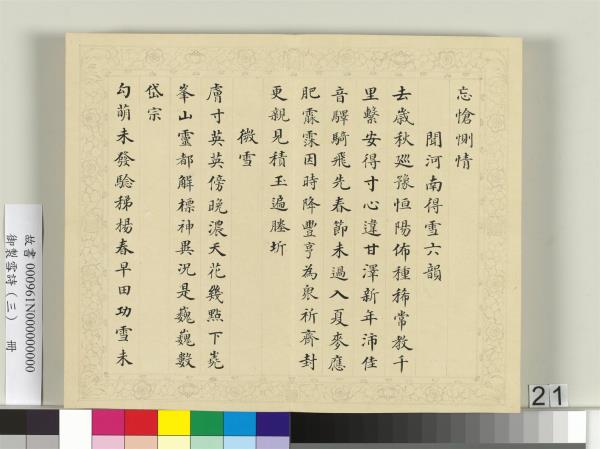 忘愴惻情
聞河南得雪六韻
去歲秋廵豫恒陽佈種稀常教千
里繫安得寸心違甘澤新年沛佳
音驛騎飛先春節未過入夏麥應
肥霢霂因時降豐亨為衆祈齋封
更親見積玉遍塍圻
微雪
膚寸英英傍晚濃天花幾點下嶤
峯山靈都解標神異况是巍巍數
岱宗
勾萌未發騐稊楊春早田功雪未
故書 000961N000000000
御製雪詩（三） 冊
21